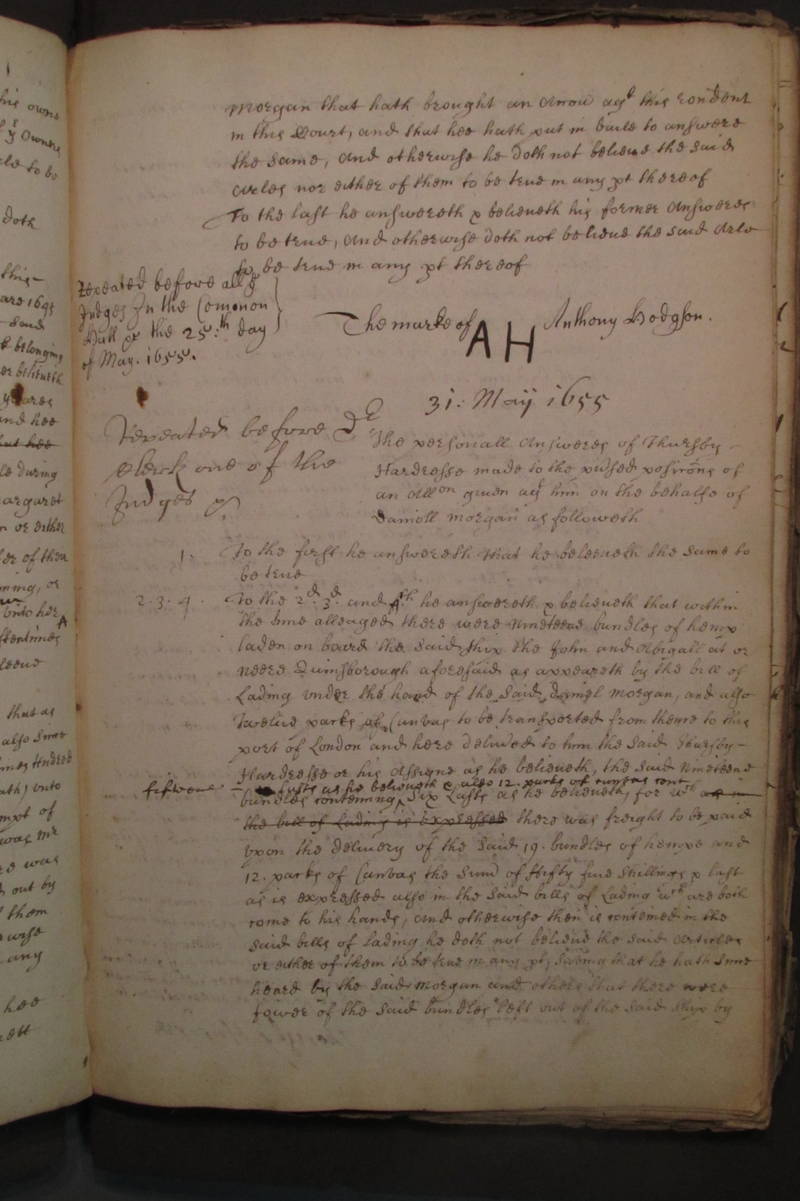 his owne
y Owners
to be
doth
this
said
belonging
beleiveth
and hee
but hee
during
margaret
or either
of them
unto her
Afternnes
that as
also since
hundred
unto
was Mr
was
out by
them
any
hee
Morgan that hath brought an Accon agt this rondent
in this Court, and that hee hath put in baile to answere
the same, And otherwise he doth not believe the said
Arles nor either of them to be true in any pt thereof
To the last he answereth & believeth his former Answeres
to be true, And otherwise doth not believe the said Arle
to be true in any pt thereof
Repeated before all ye
Judges In the Common
Hall pr the 25:th day
of May. 1655.
The marke of AH Anthony Hodgson.
31: May 1655
Repeated before Dr
Clerk one of the
Judges
The personall Answeres of Thursby
Hardresse made to the pu'sed positions of
an Allon given agt him on the behalfe of
Daniell Morgan as followeth
1. To the first he answereth that he beleeveth the same to
be true
2. 3. 4. To the 2d. 3d. and 4th he answereth & believeth that within
the time alleaged there were Nineteene bundles of hempe
laden on board the said ship the John and Abigall at or
neere Quinsborough aforesaid as appeareth by the bill of
Lading under the hand of the said Daniel Morgan, and also
twelve packs of Canvas to be transported from thence to this
port of London and here delivered to him the said Thursby
Hardresse or his Assigne as he believeth, the said Nineteene
fifteene lasts as he believeth & also 12. packs of canvas cont
bundles contenning Six Lasts as he believeth, for wch as in
the bill of Lading is expressed there was freight to be paid
upon the delivery of the said 19. bundles of hempe and
12. packs of Canvas the Sum of fifty five shillings p last
as is expressed also in the said bills of Lading wch are both
come to his hands, And otherwise then is contened in the
said bills of lading he doth not believe the said Articles
or either of them to be true in any pt, Saving that he hath since
heard by the said Morgan and others that there were
fower of the said bundles left out of the said ship by